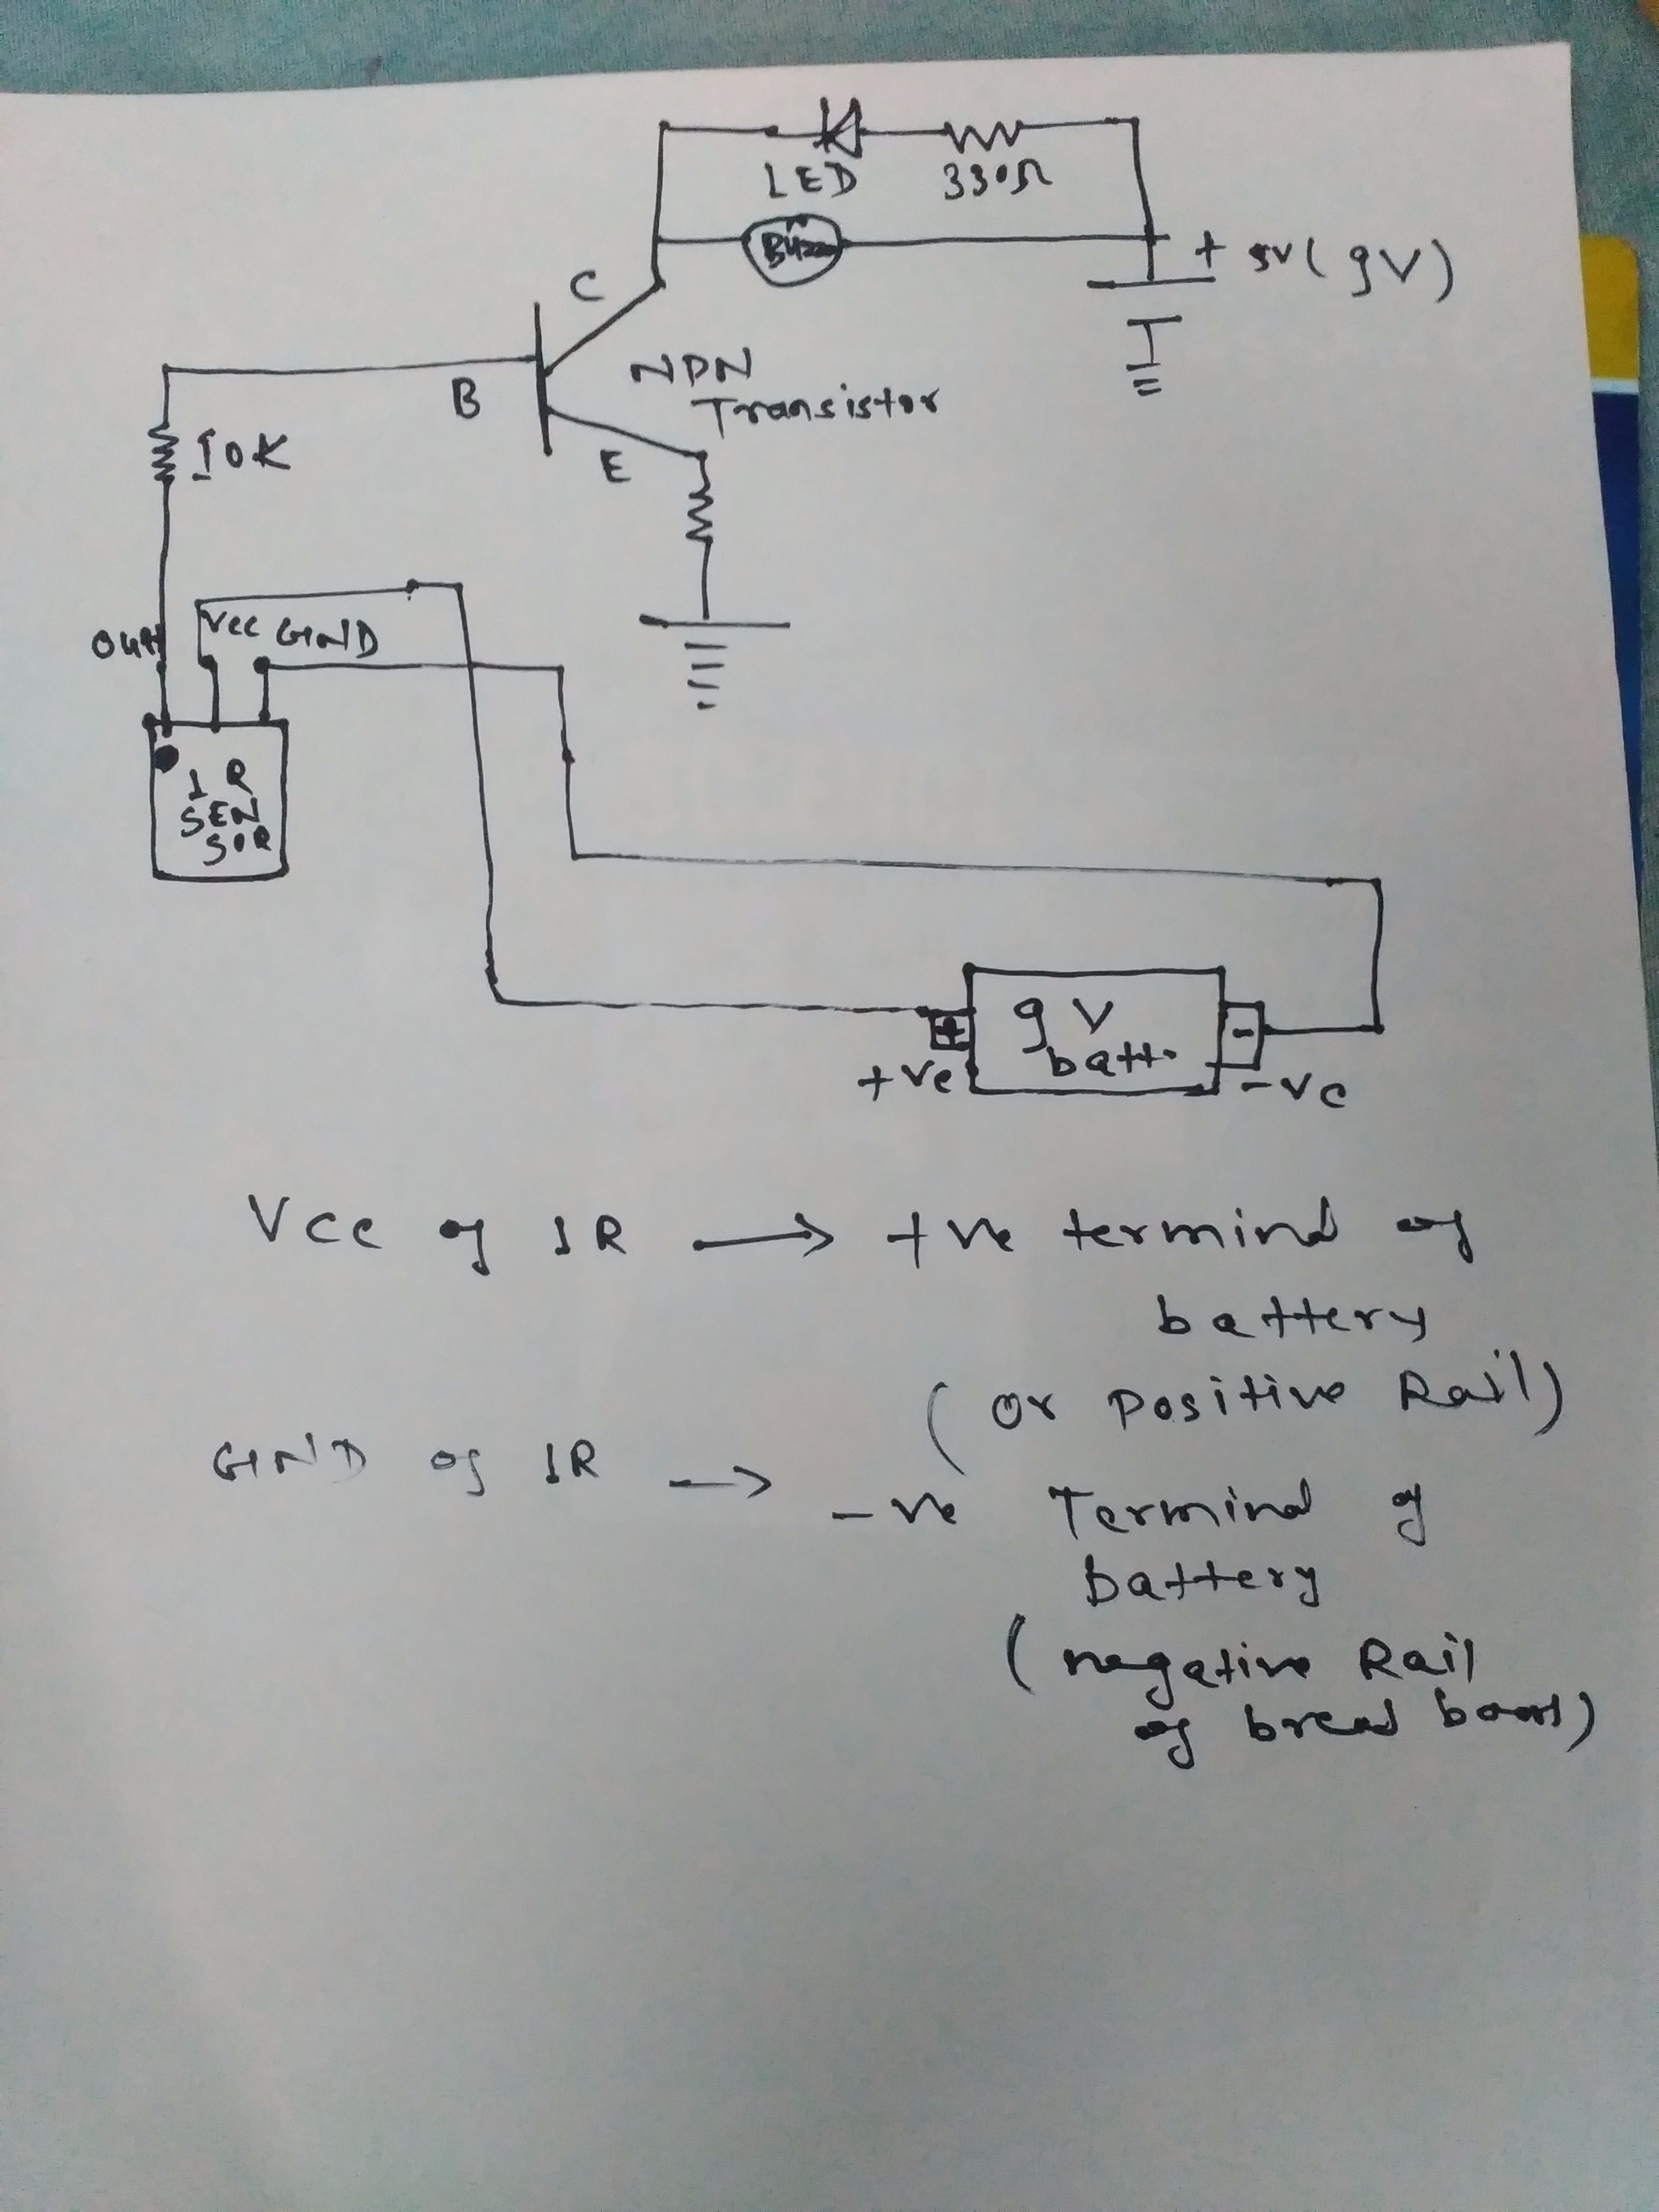 LED
330Ω
Buzz
+ 5V ( 9V )
C
B
NPN
Transistor
E
10K
out
Vcc GND
IR
SEN
SOR
+
9V
batt.
-
+ve
-ve
Vcc of IR → +ve terminal of
battery
( or Positive Rail )
GND of IR → -ve Terminal of
battery
( negative Rail
of bread board )